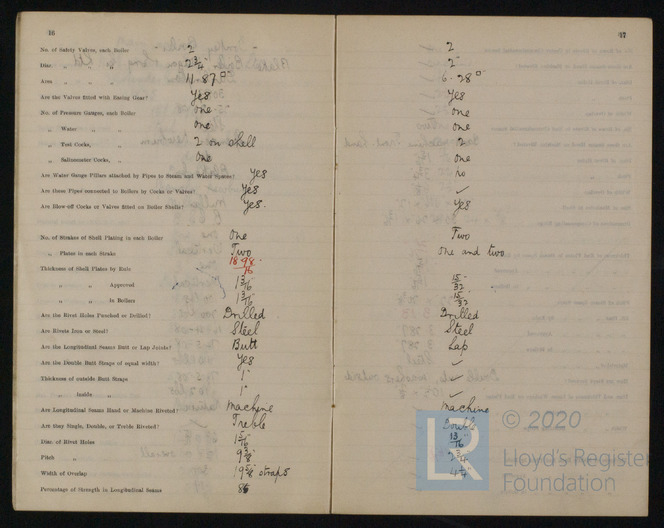 16
17
No. of Safety Valves, each Boiler 2 2
Dia. „ „ „ 2 3/4" 2"
Area „ „ „ 11.87 □" 6.28 □"
Are the Valves fitted with Easing Gear? Yes Yes
No. of Pressure Gauges, each Boiler one one
„ Water „ „ one one
„ Test Cocks, „ 2 on shell 2
„ Salinometer Cocks, „ One one
Are Water Gauge Pillars attached by Pipes to Steam and Water Spaces? Yes no
Are these Pipes connected to Boilers by Cocks or Valves? Yes ✓
Are Blow-off Cocks or Valves fitted on Boiler Shells? Yes. Yes
No. of Strakes of Shell Plating in each Boiler One Two
„ Plates in each Strake Two one and two
Thickness of Shell Plates by Rule
„ „ Approved 1 3/16 15/32
„ „ in Boilers 1 3/16 15/32
Are the Rivet Holes Punched or Drilled? Drilled Drilled
Are Rivets Iron or Steel? Steel Steel
Are the Longitudinal Seams Butt or Lap Joints? Butt Lap
Are the Double Butt Straps of equal width? Yes ✓
Thickness of outside Butt Straps 1" ✓
„ inside „ 1" ✓
Are Longitudinal Seams Hand or Machine Riveted? Machine Machine
Are they Single, Double, or Treble Riveted? Treble Double
Dia. of Rivet Holes 1 5/16" 13/16"
Pitch „ 9 3/8" 2 3/4"
Width of Overlap 19 5/8" straps 4 1/4"
Percentage of Strength in Longitudinal Seams
LR
© 2020
Lloyd's Register
Foundation